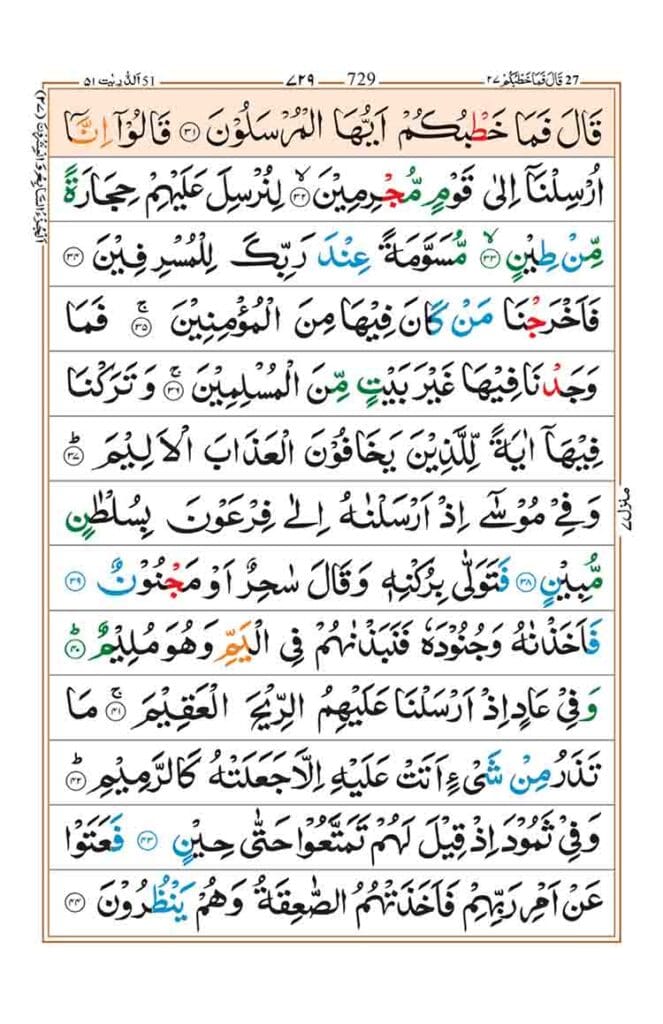 27 قَالَ فَمَا خَطْبُكُمْ ٢٧ 729 ٧٢٩ 51 اَلذّٰرِيٰت ٥١
قَالَ فَمَا خَطْبُكُمْ اَيُّهَا الْمُرْسَلُوْنَ ۝٣١ قَالُوْۤا اِنَّاۤ
اُرْسِلْنَاۤ اِلٰى قَوْمٍ مُّجْرِمِيْنَ ۝٣٢ۙ لِنُرْسِلَ عَلَيْهِمْ حِجَارَةً
مِّنْ طِيْنٍ ۝٣٣ۙ مُّسَوَّمَةً عِنْدَ رَبِّكَ لِلْمُسْرِفِيْنَ ۝٣٤
فَاَخْرَجْنَا مَنْ كَانَ فِيْهَا مِنَ الْمُؤْمِنِيْنَ ۝٣٥ۚ فَمَا
وَجَدْنَا فِيْهَا غَيْرَ بَيْتٍ مِّنَ الْمُسْلِمِيْنَ ۝٣٦ۚ وَتَرَكْنَا
فِيْهَاۤ اٰيَةً لِّلَّذِيْنَ يَخَافُوْنَ الْعَذَابَ الْاَلِيْمَ ۝٣٧ؕ
وَفِيْ مُوْسٰۤى اِذْ اَرْسَلْنٰهُ اِلٰى فِرْعَوْنَ بِسُلْطٰنٍ
مُّبِيْنٍ ۝٣٨ فَتَوَلّٰى بِرُكْنِهٖ وَقَالَ سٰحِرٌ اَوْ مَجْنُوْنٌ ۝٣٩
فَاَخَذْنٰهُ وَجُنُوْدَهٗ فَنَبَذْنٰهُمْ فِى الْيَمِّ وَهُوَ مُلِيْمٌ ۝٤٠ؕ
وَفِيْ عَادٍ اِذْ اَرْسَلْنَا عَلَيْهِمُ الرِّيْحَ الْعَقِيْمَ ۝٤١ۚ مَا
تَذَرُ مِنْ شَيْءٍ اَتَتْ عَلَيْهِ اِلَّا جَعَلَتْهُ كَالرَّمِيْمِ ۝٤٢ؕ
وَفِيْ ثَمُوْدَ اِذْ قِيْلَ لَهُمْ تَمَتَّعُوْا حَتّٰى حِيْنٍ ۝٤٣ فَعَتَوْا
عَنْ اَمْرِ رَبِّهِمْ فَاَخَذَتْهُمُ الصّٰعِقَةُ وَهُمْ يَنْظُرُوْنَ ۝٤٤
منزل ٧